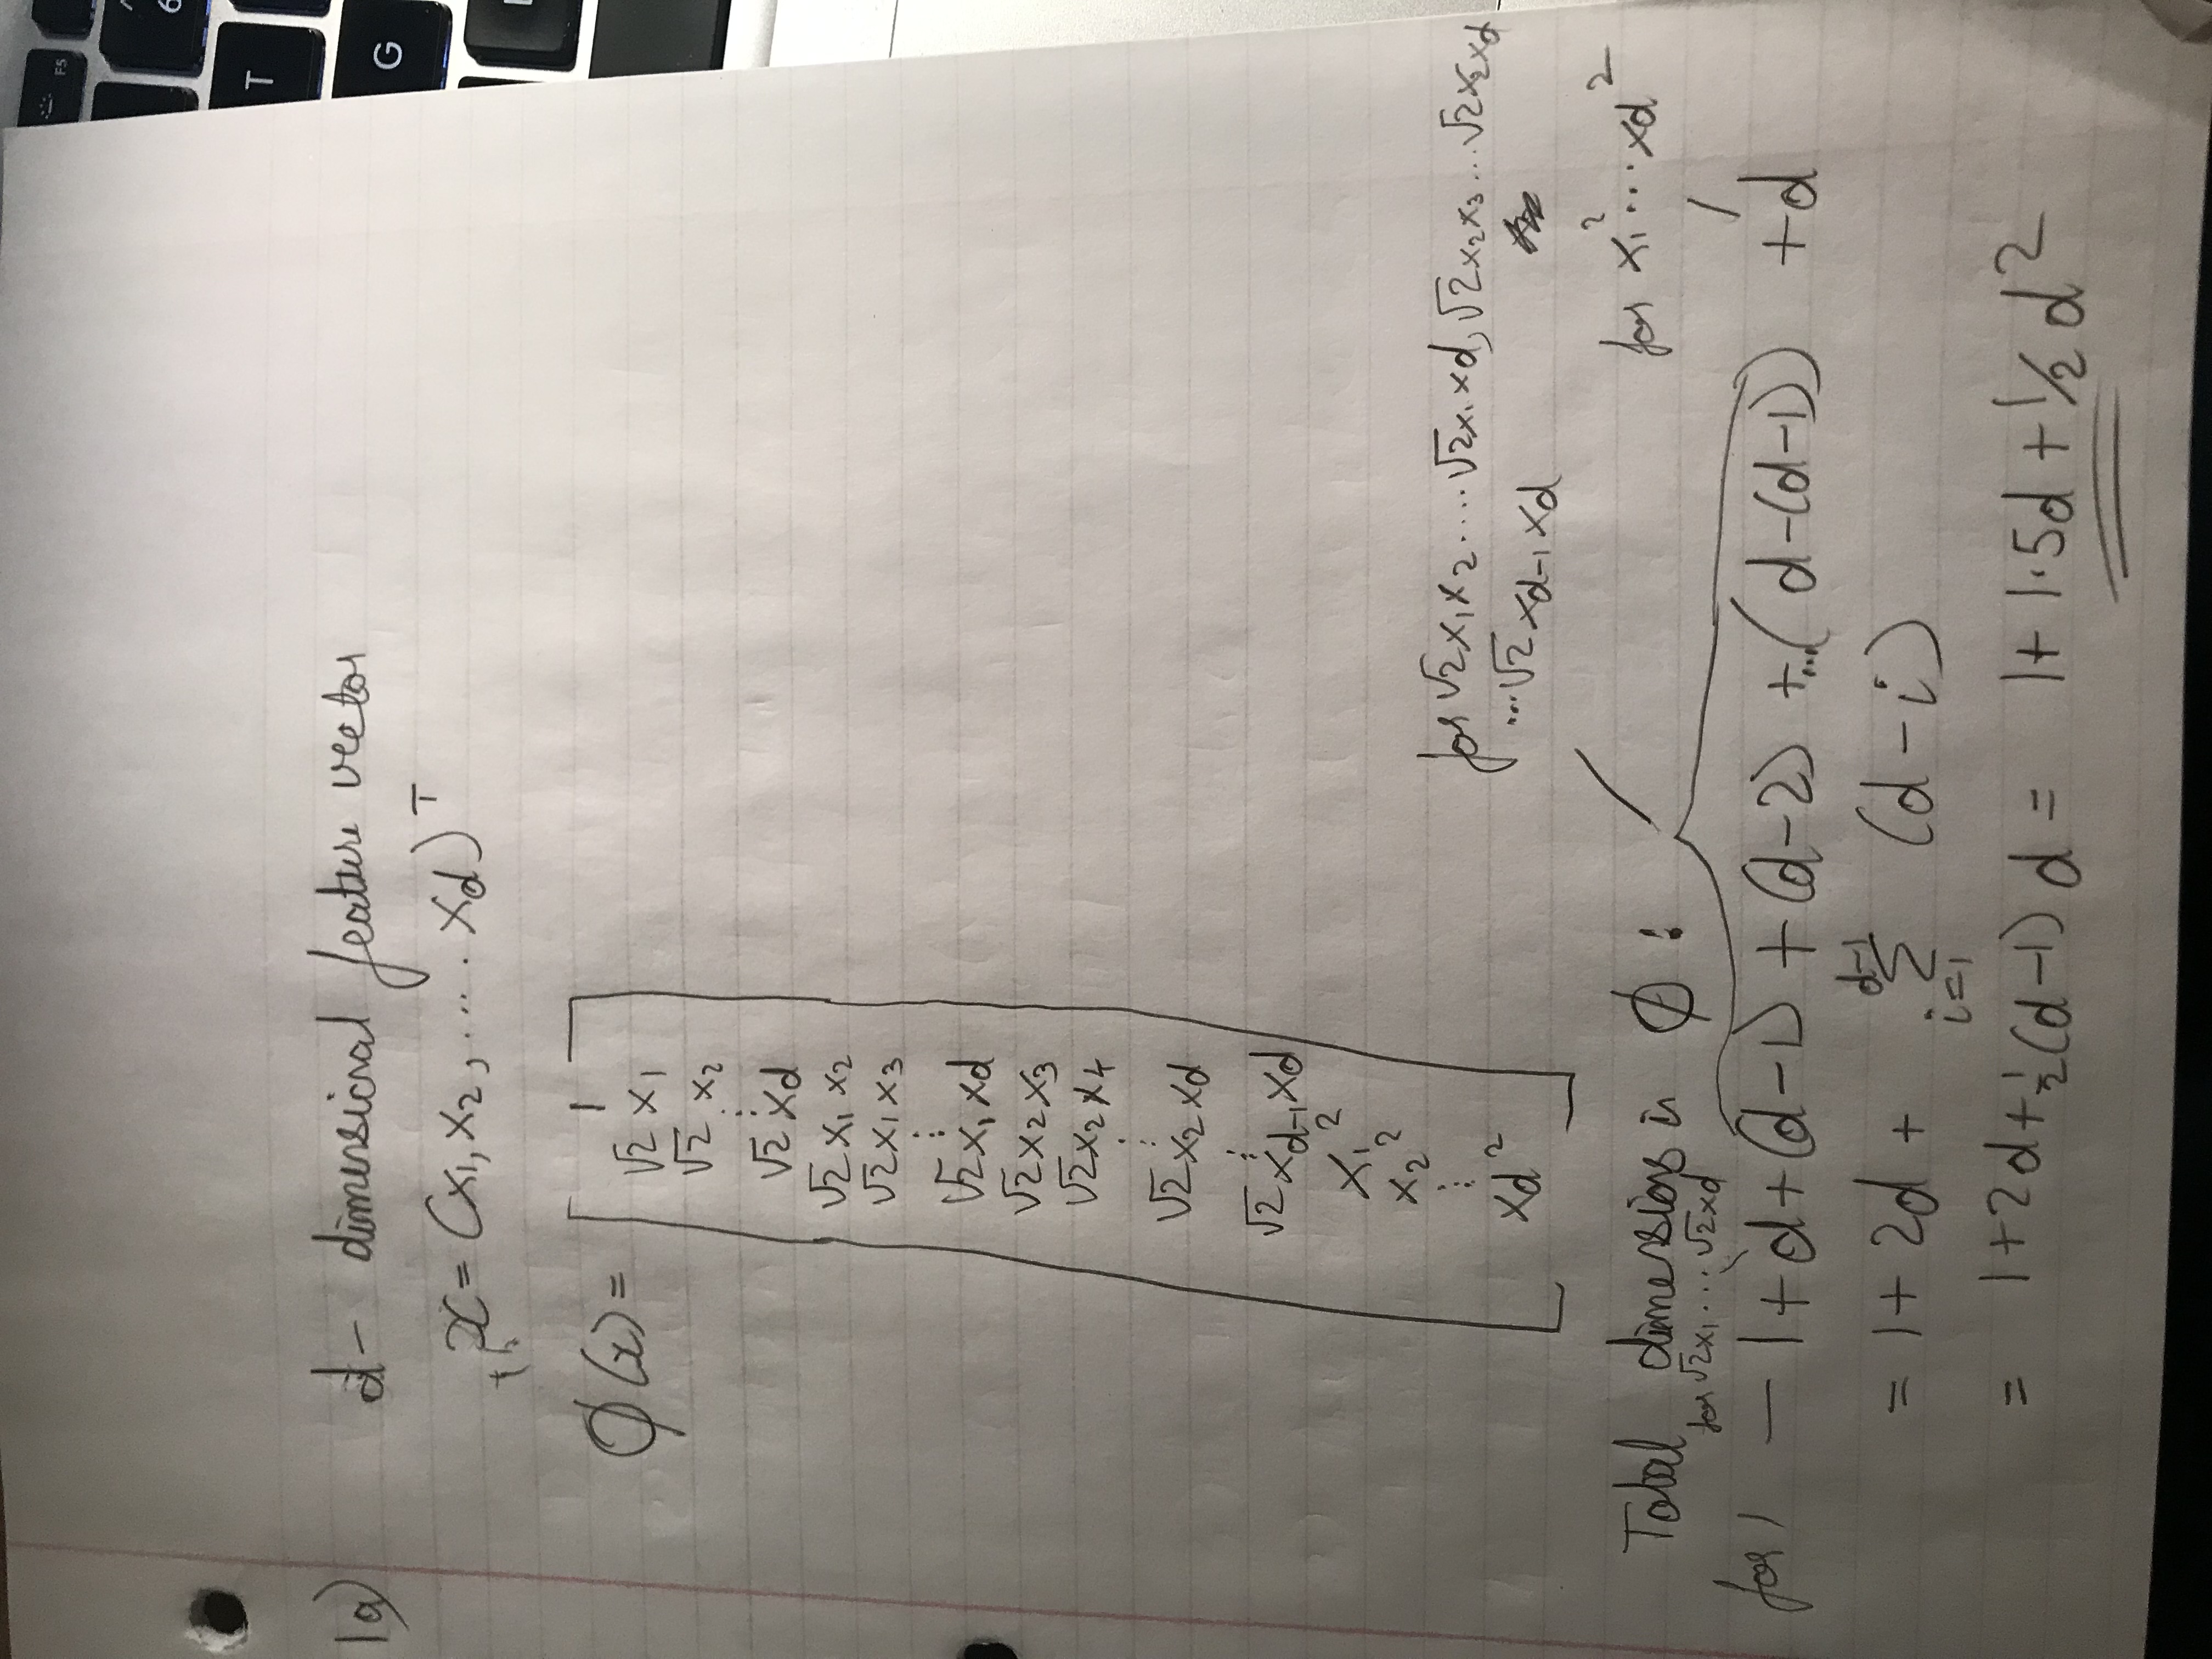 1a) d- dimensional feature vector
x = (x₁, x₂, ..... x_d)ᵀ
φ(x) =
1
√2 x₁
√2 x₂
⋮
√2 x_d
√2 x₁ x₂
√2 x₁ x₃
⋮
√2 x₁ x_d
√2 x₂ x₃
√2 x₂ x₄
⋮
√2 x₂ x_d
⋮
√2 x_{d-1} x_d
x₁²
x₂²
⋮
x_d²
for √2 x₁ x₂ .... √2 x₁ x_d, √2 x₂ x₃ ... √2 x₂ x_d
... √2 x_{d-1} x_d
for x₁² ... x_d²
Total dimensions in φ :
for √2 x₁ ... √2 x_d
for 1 — 1 + d + (d-1) + (d-2) + ... (d-(d-1)) + d
= 1 + 2d + Σ_{i=1}^{d-1} (d-i)
= 1 + 2d + ½ (d-1) d = 1 + 1.5d + ½ d²
F5
6
T
G